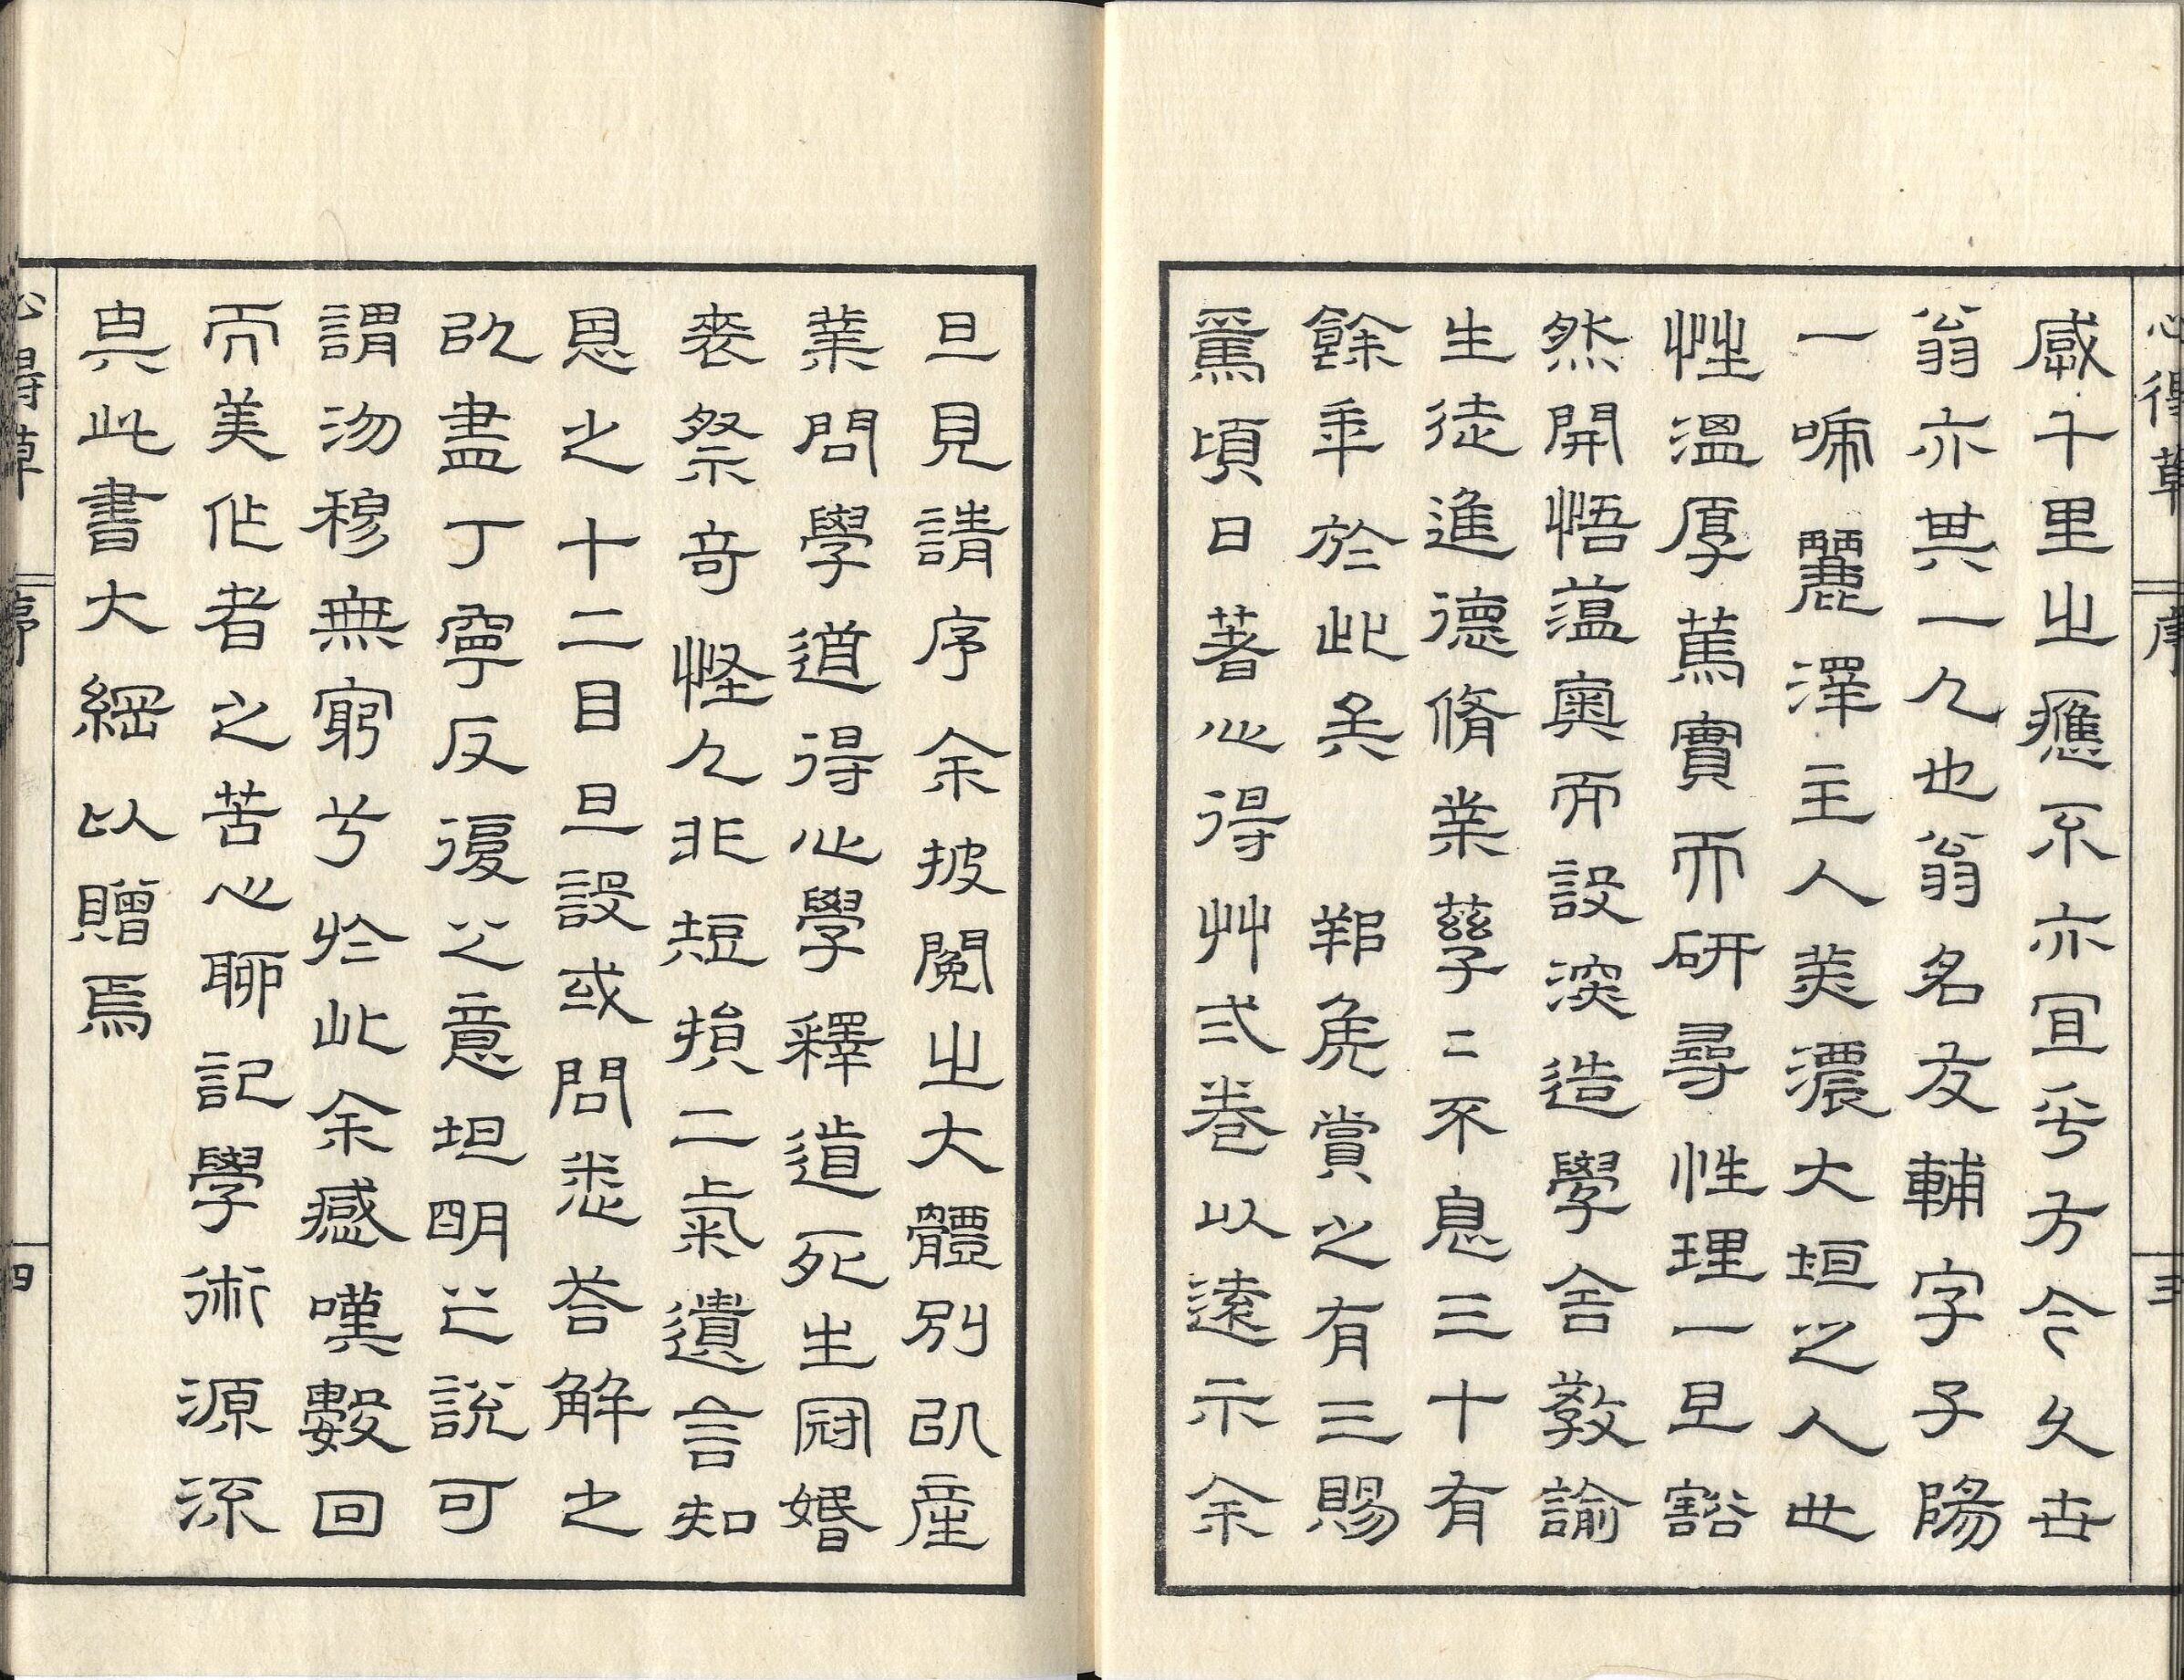 心得草 序 三
感千里之應不亦宜乎方今久世
翁亦其一人也翁名友輔字子陽
一啼麗澤主人美濃大垣之人也
性溫厚篤實而研尋性理一旦豁
然開悟蘊奧而設深造學舍教諭
生徒進德脩業孳〻不息三十有
餘年於此矣 郡侯賞之有三賜
焉頃日著心得艸弎卷以遠示余
且見請序余披閱之大體別以產
業問學道得心學釋道死生冠婚
喪祭奇怪人非短損二氣遺言知
恩之十二目且設或問悉荅解之
以盡丁寧反復之意坦明之說可
謂沕穆無窮兮於此余感嘆數回
而美作者之苦心聊記學術源流
與此書大綱以贈焉
心得草 序 四